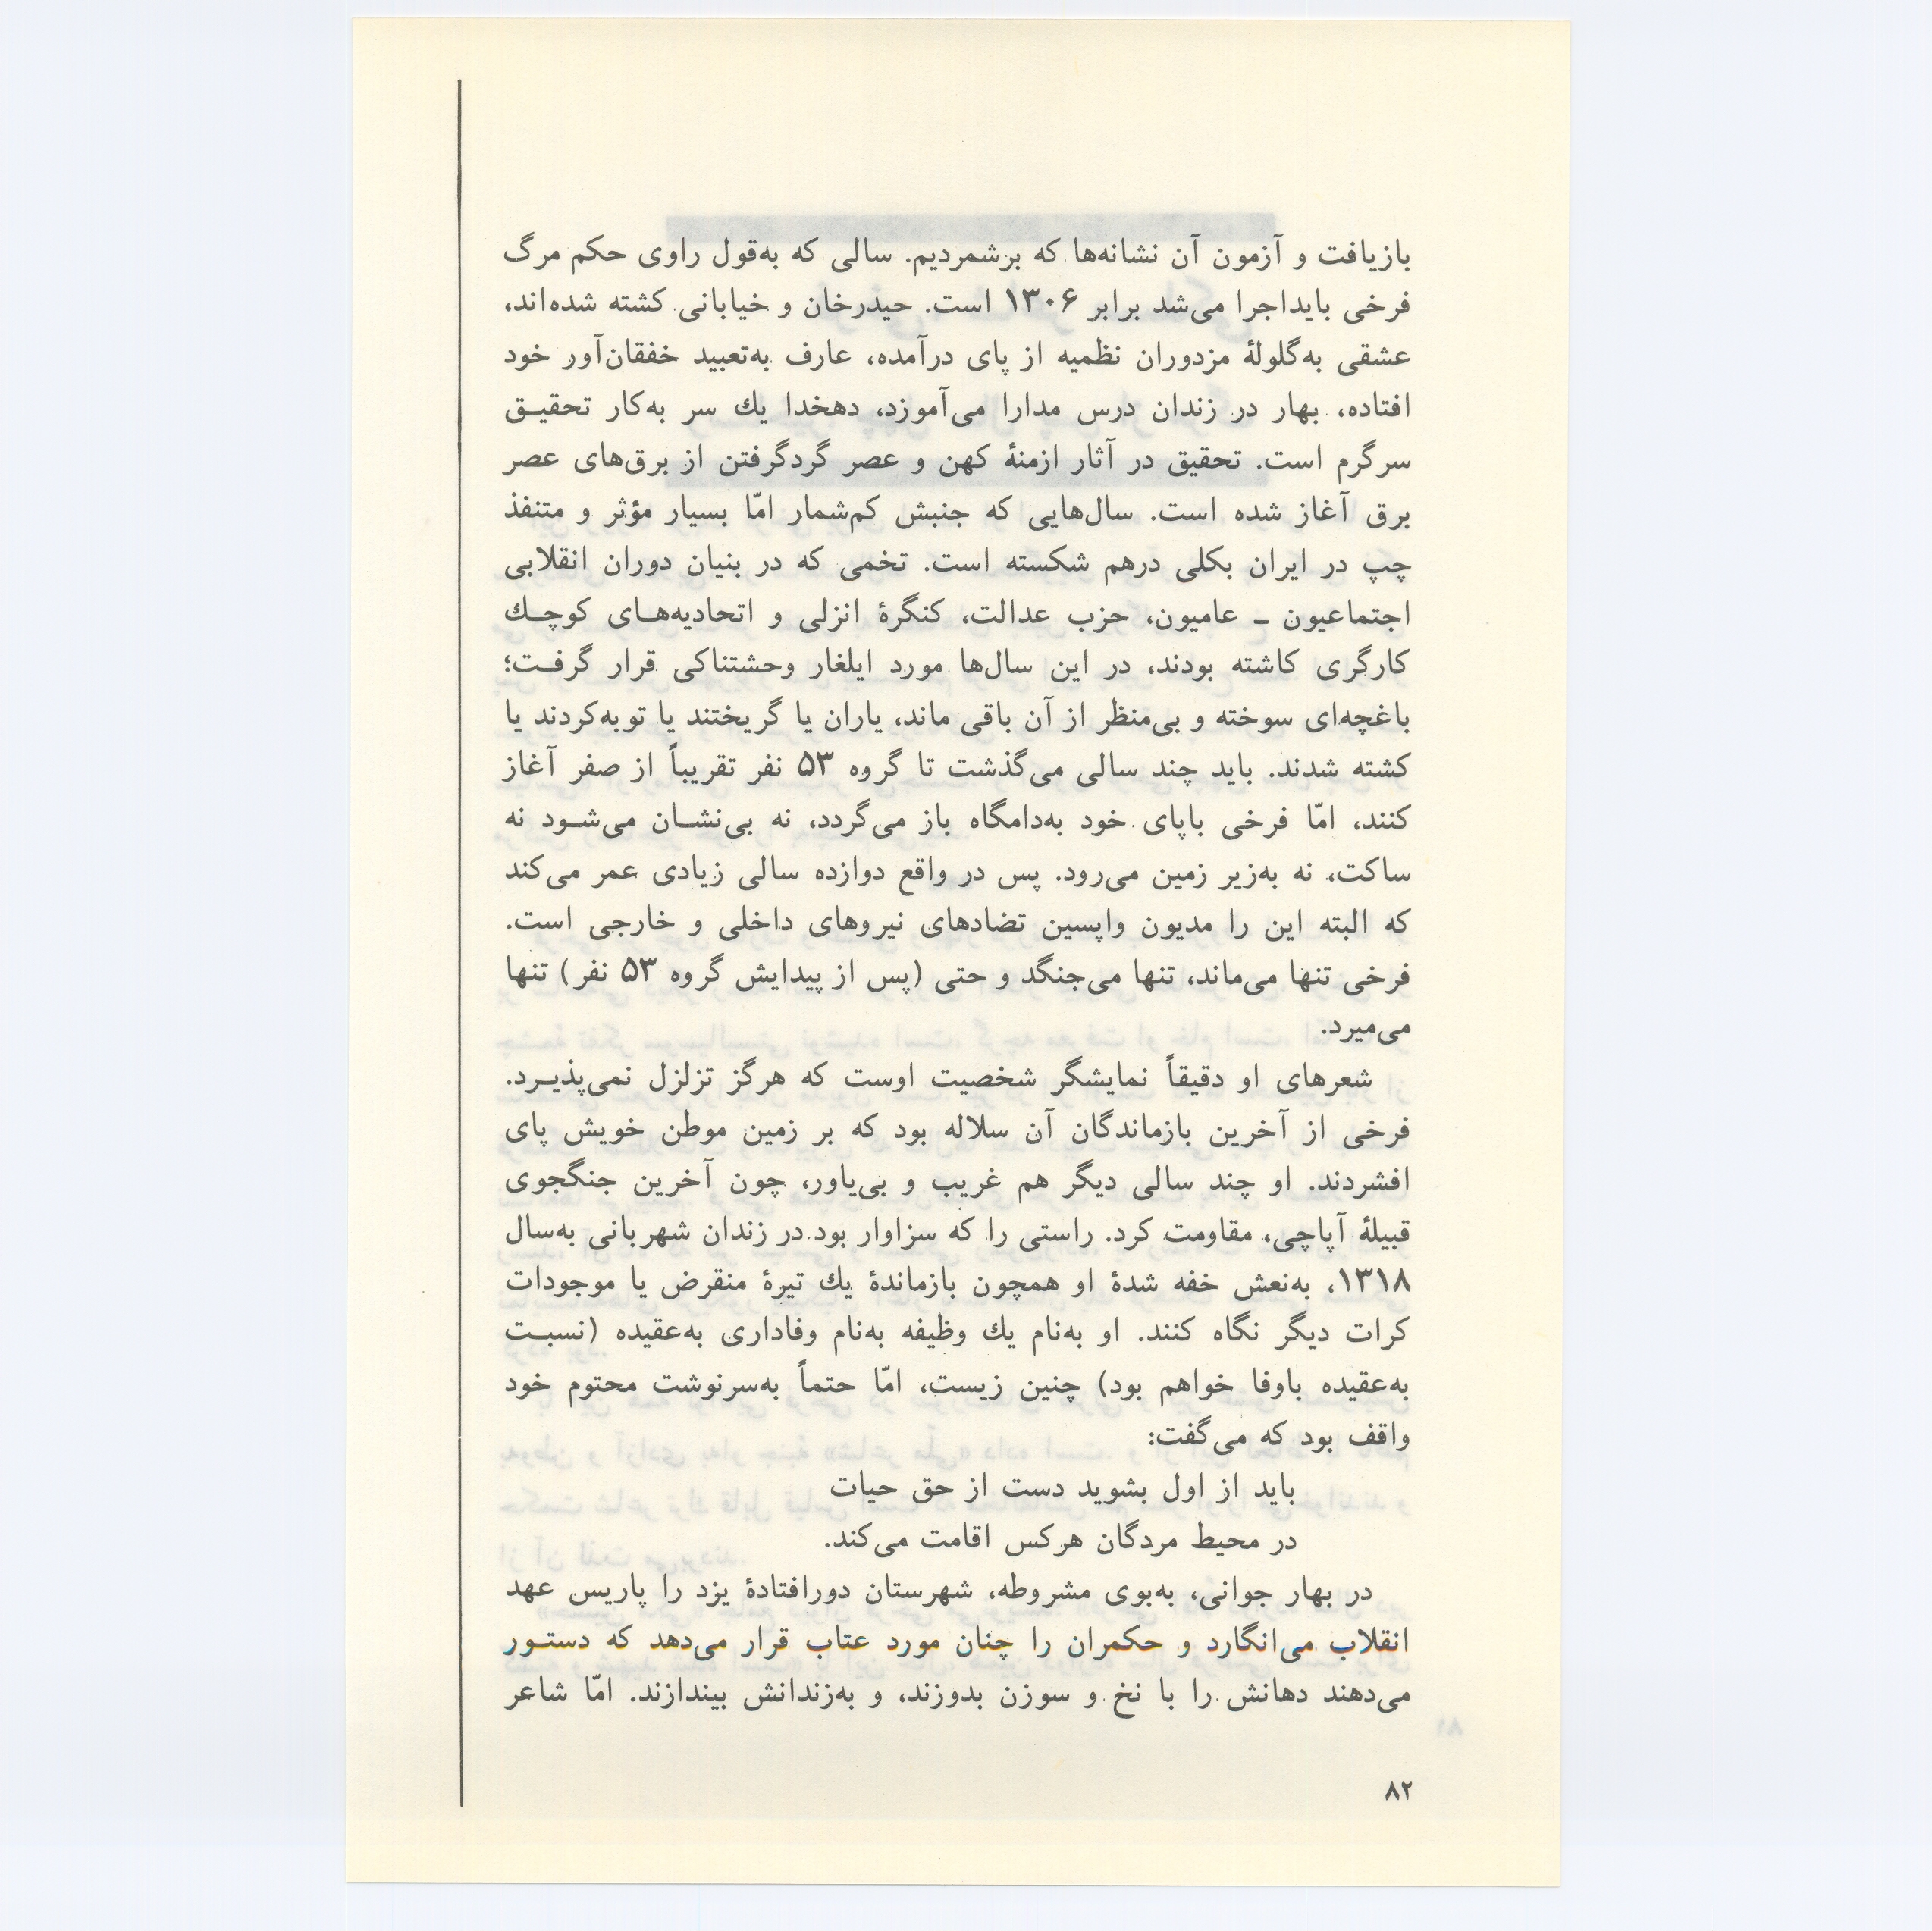 بازیافت و آزمون آن نشانه‌ها که برشمردیم. سالی که به‌قول راوی حکم مرگ
فرخی بایداجرا می‌شد برابر ۱۳۰۶ است. حیدرخان و خیابانی کشته شده‌اند،
عشقی به‌گلولهٔ مزدوران نظمیه از پای درآمده، عارف به‌تعبید خفقان‌آور خود
افتاده، بهار در زندان درس مدارا می‌آموزد، دهخدا یك سر به‌کار تحقیـق
سرگرم است. تحقیق در آثار ازمنهٔ کهن و عصر گردگرفتن از برق‌های عصر
برق آغاز شده است. سال‌هایی که جنبش کم‌شمار امّا بسیار مؤثر و متنفذ
چپ در ایران بکلی درهم شکسته است. تخمی که در بنیان دوران انقلابی
اجتماعیون ـ عامیون، حزب عدالت، کنگرهٔ انزلی و اتحادیه‌هـای کوچـك
کارگری کاشته بودند، در این سال‌ها مورد ایلغار وحشتناکی قرار گرفـت؛
باغچه‌ای سوخته و بی‌منظر از آن باقی ماند، یاران یا گریختند یا توبه‌کردند یا
کشته شدند. باید چند سالی می‌گذشت تا گروه ۵۳ نفر تقریباً از صفر آغاز
کنند، امّا فرخی باپای خود به‌دامگاه باز می‌گردد، نه بی‌نشـان می‌شـود نه
ساکت، نه به‌زیر زمین می‌رود. پس در واقع دوازده سالی زیادی عمر می‌کند
که البته این را مدیون واپسین تضادهای نیروهای داخلی و خارجی است.
فرخی تنها می‌ماند، تنها می‌جنگد و حتی (پس از پیدایش گروه ۵۳ نفر) تنها
می‌میرد.
شعرهای او دقیقاً نمایشگر شخصیت اوست که هرگز تزلزل نمی‌پذیـرد.
فرخی از آخرین بازماندگان آن سلاله بود که بر زمین موطن خویش پای
افشردند. او چند سالی دیگر هم غریب و بی‌یاور، چون آخرین جنگجوی
قبیلهٔ آپاچی، مقاومت کرد. راستی را که سزاوار بود در زندان شهربانی به‌سال
۱۳۱۸، به‌نعش خفه شدهٔ او همچون بازماندهٔ یك تیرهٔ منقرض یا موجودات
کرات دیگر نگاه کنند. او به‌نام یك وظیفه به‌نام وفاداری به‌عقیده (نسبـت
به‌عقیده باوفا خواهم بود) چنین زیست، امّا حتماً به‌سرنوشت محتوم خود
واقف بود که می‌گفت:
باید از اول بشوید دست از حق حیات
در محیط مردگان هرکس اقامت می‌کند.
در بهار جوانی، به‌بوی مشروطه، شهرستان دورافتادهٔ یزد را پاریس عهد
انقلاب می‌انگارد و حکمران را چنان مورد عتاب قرار می‌دهد که دستـور
می‌دهند دهانش را با نخ و سوزن بدوزند، و به‌زندانش بیندازند. امّا شاعر
۸۲